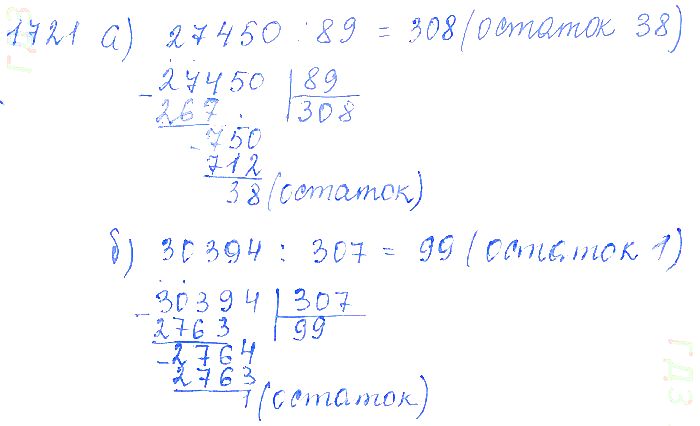 1721 а) 27450 : 89 = 308 (остаток 38)
- 27450 | 89
267 308
- 750
712
38 (остаток)
б) 30394 : 307 = 99 (остаток 1)
- 30394 | 307
2763 99
- 2764
2763
1 (остаток)
ГДЗ